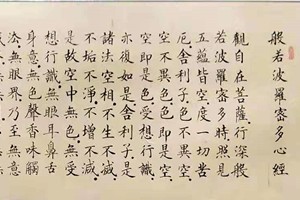 般若波羅密多心經
觀自在菩薩行深般
若波羅密多時照見
五蘊皆空度一切苦
厄舍利子色不異空
空不異色色即是空
空即是色受想行識
亦復如是舍利子是
諸法空相不生不滅
不垢不淨不增不減
是故空中無色無受
想行識無眼耳鼻舌
身意無色聲香味觸
法無眼界乃至無意